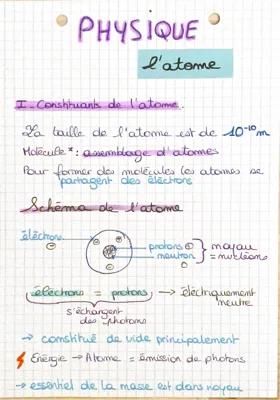 PHYSIQUE
l'atome
I - Constituants de l'atome.
La taille de l'atome est de 10⁻¹⁰m
Molécule* : assemblage d'atomes
Pour former des molécules les atomes se
partagent des électrons
Schéma de l'atome
électrons
protons ⊕
neutron
} noyau
= nucléons
électrons = protons → électriquement
neutre
s'échangent
des photons
→ constitué de vide principalement
Energie → Atome = émission de photons
→ essentiel de la masse est dans noyau